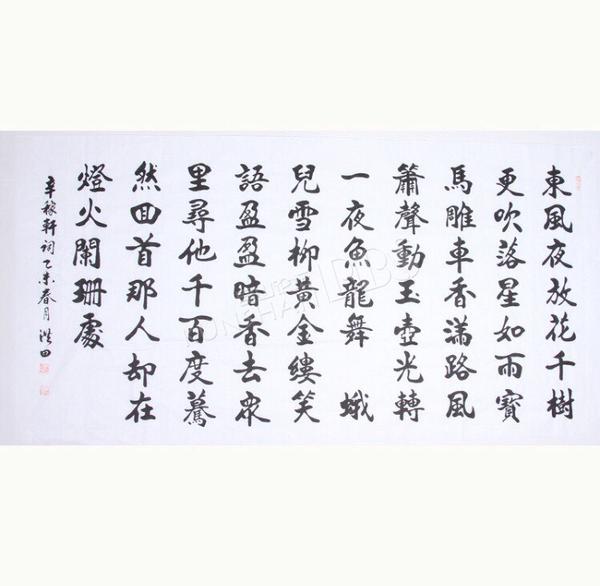 東風夜放花千樹
更吹落星如雨寶
馬雕車香滿路風
簫聲動玉壺光轉
一夜魚龍舞 蛾
兒雪柳黃金縷笑
語盈盈暗香去眾
里尋他千百度驀
然回首那人却在
燈火闌珊處
辛稼軒詞乙未春月洪田